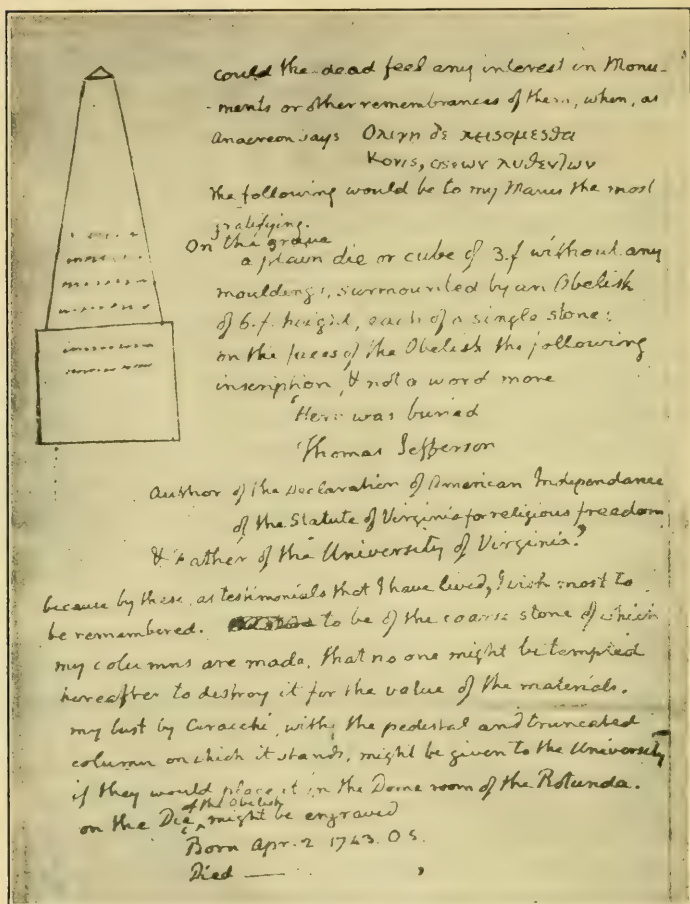 could the dead feel any interest in Monu-
-ments or other remembrances of them, when, as
Anacreon says Ολιγη δε κεισομεσθα
Κονις, οστεων λυθεντων
the following would be to my Manes the most
gratifying.
On the grave
a plain die or cube of 3.f without any
mouldings, surmounted by an Obelisk
of 6.f. height, each of a single stone:
on the faces of the Obelisk the following
inscription, & not a word more
'Here was buried
Thomas Jefferson
Author of the Declaration of American Independance
of the Statute of Virginia for religious freedom
& Father of the University of Virginia.'
because by these, as testimonials that I have lived, I wish most to
be remembered. to be of the coarse stone of which
my columns are made, that no one might be tempted
hereafter to destroy it for the value of the materials.
my bust by Ciracchi, with the pedestal and truncated
column on which it stands, might be given to the University
if they would place it in the Dome room of the Rotunda.
on the Die of the Obelisk might be engraved
Born Apr. 2 1743. O.S.
Died —